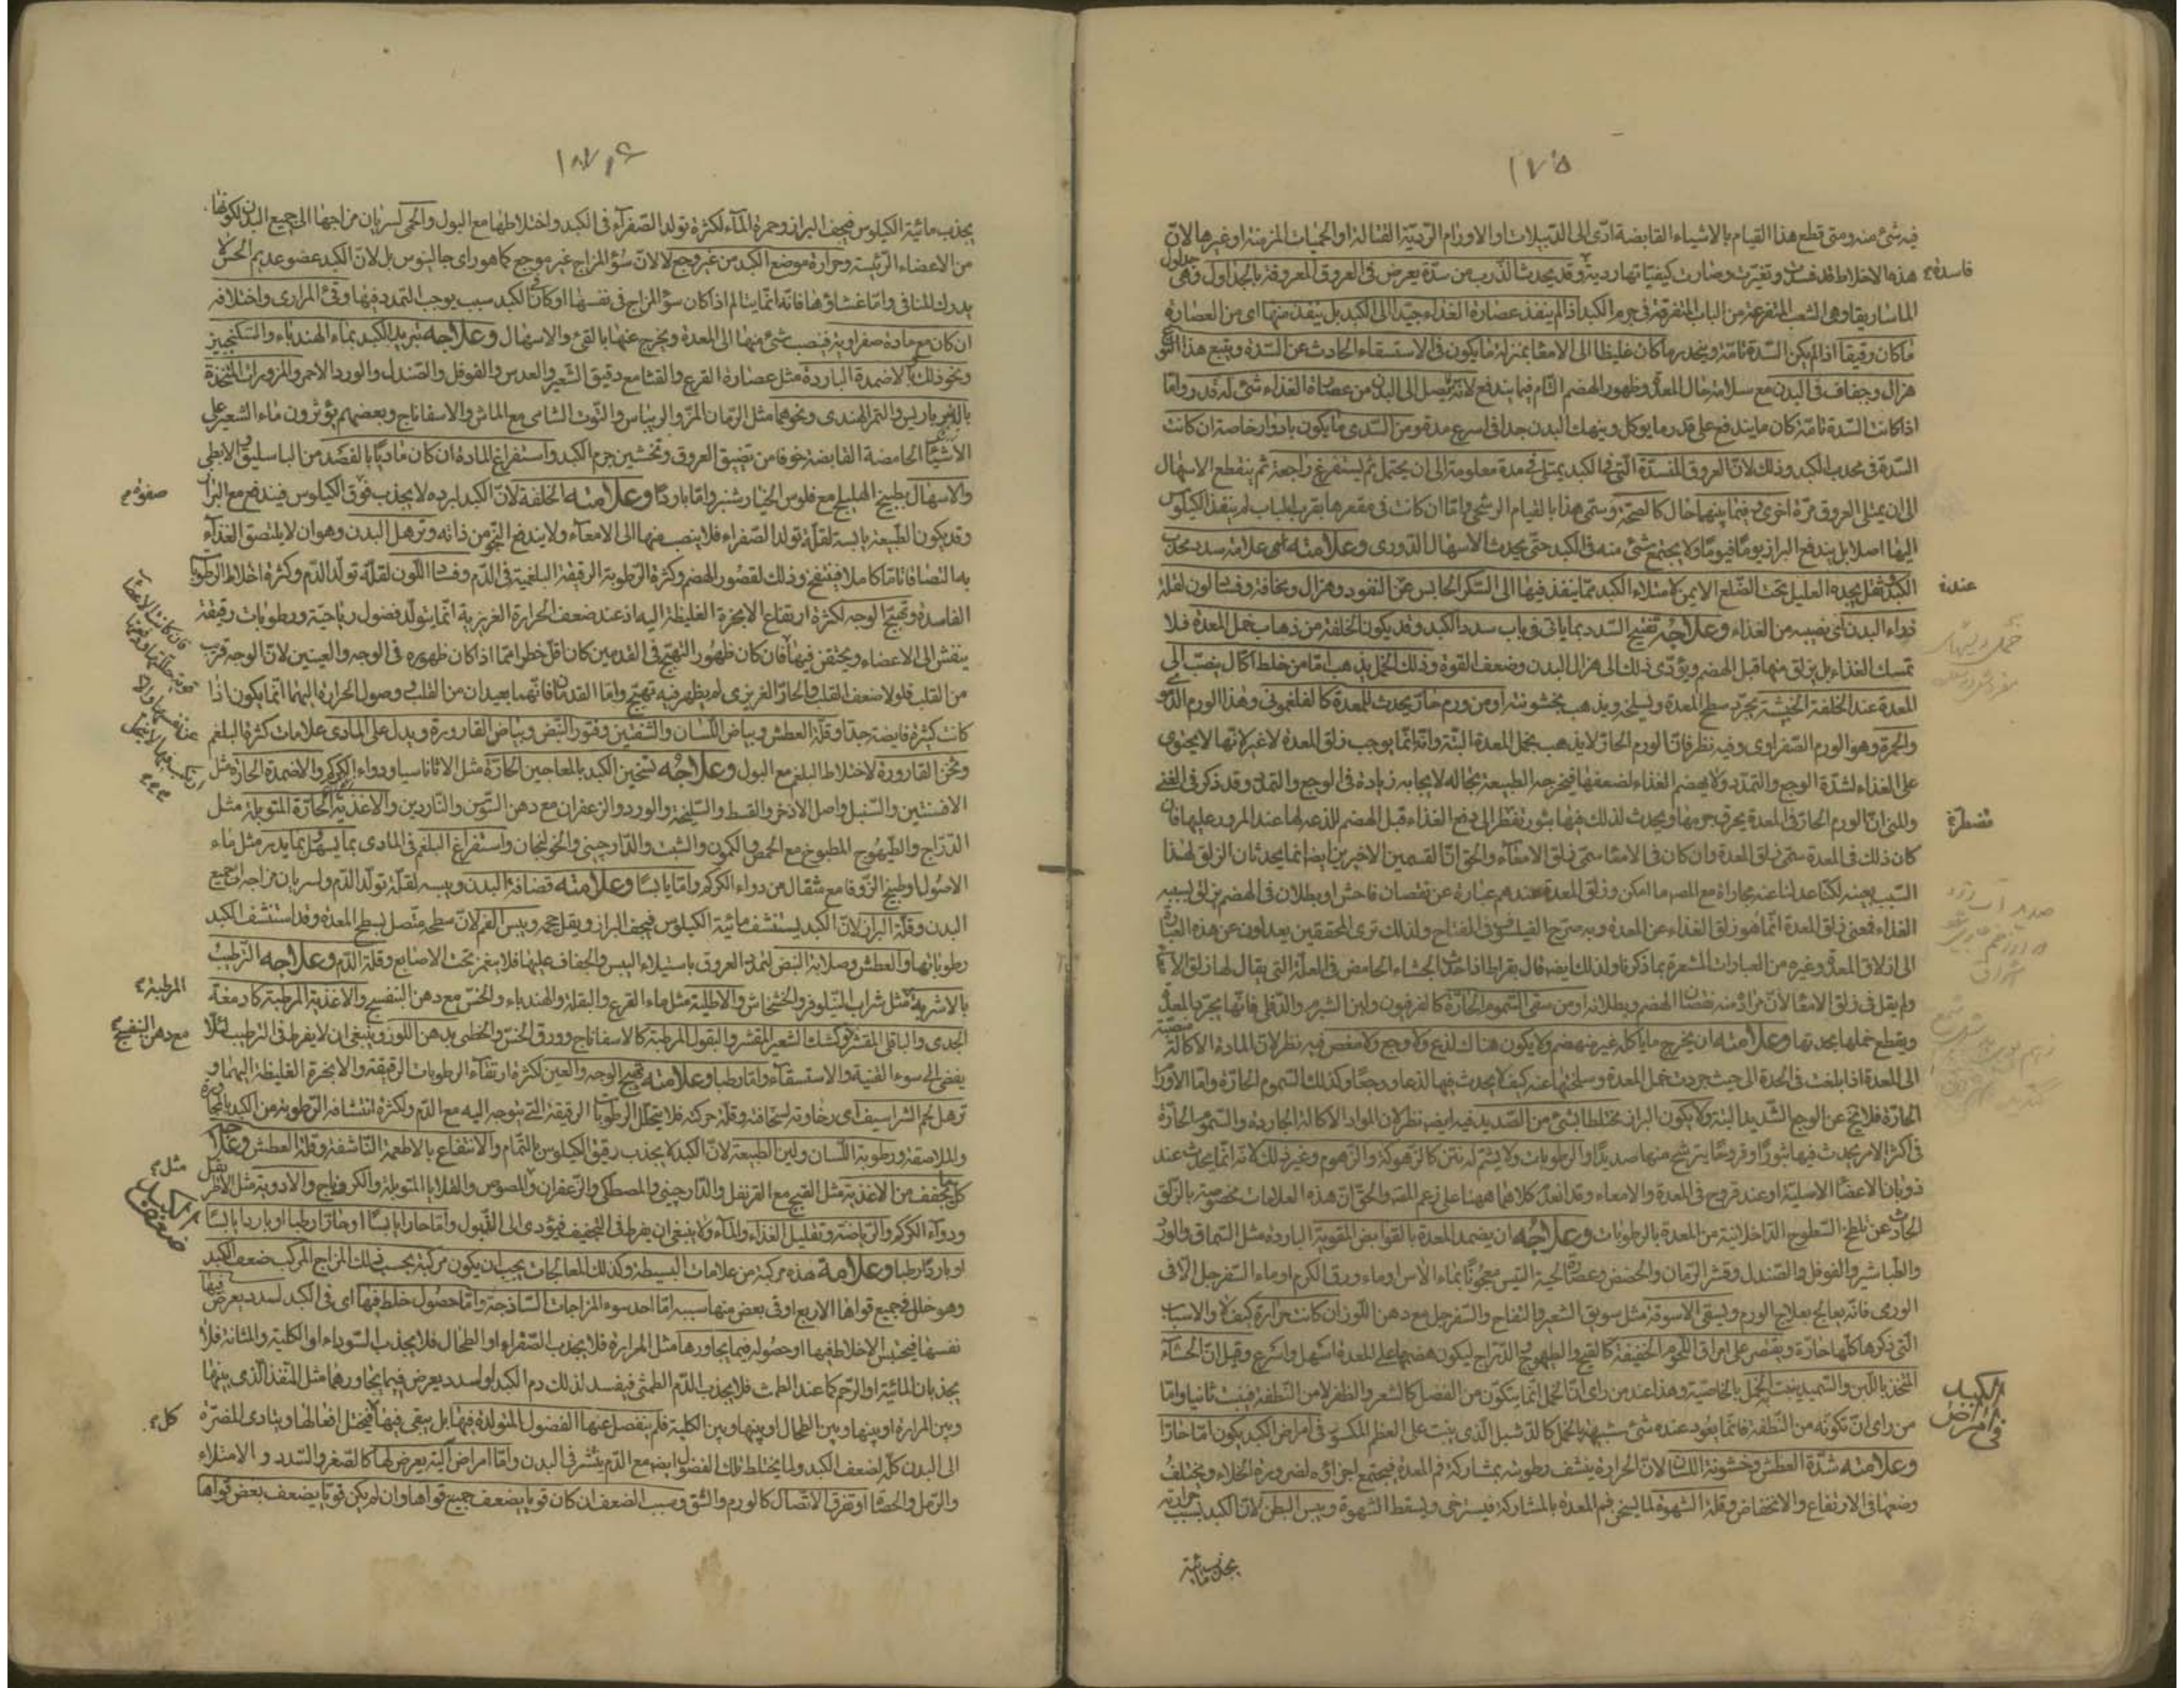 ١٧٥
فيه شئ منه ومتى قطع هذا القيام بالاشياء القابضة ادّى الى الدبيلات او الاورام الرديّة القتالة او الحميات المزمنة او غيرها لانّ
هذه الاخلاط قد فسدت وتغيّرت وصارت كيفيّاتها رديّة وقد يحدث الذّرب من سدّة يعرض فى العروق المعروفة بالجداول وهى
فاسدة
الماساريقا وهى الشعب المتفرّعة من الباب المتفرّقة فى جرم الكبد اذا لم ينفذ عصارة الغذاء جيّدا الى الكبد بل ينفذ منها اى من العصارة
ما كان رقيقا اذا لم يكن السّدة تامّة وينحدر ما كان غليظا الى الامعاء بمنزلة ما يكون فى الاستسقاء الحادث عن السّدة ويتبع هذا النوع
هزال وجفاف فى البدن مع سلامة حال المعدة وظهور الهضم التام فيما يندفع لانّه لا يصل الى البدن من عصارة الغذاء شئ له قدر وامّا
اذا كانت السّدة تامّة كان ما يندفع على قدر ما يوكل وينهك البدن جدا فى اسرع مدة ومن السّدى ما يكون بادوار خاصة ان كانت
السّدة فى محدب الكبد وذلك لانّ العروق المنسدّة الّتى فى الكبد يمتلى فى مدة معلومة الى ان يحتمل ثم يستفرغ راجعة ثم ينقطع الاسهال
الى ان يمتلى العروق مرّة اخرى وفيما بينهما حال كالصحّة وسمّى هذا بالقيام الرسمى وامّا ان كانت فى مقعرها بقرب الباب لم ينفذ الكيلوس
اليها اصلا بل يندفع البراز يوما فيوما ولا يجتمع شئ منه فى الكبد حتى يحدث الاسهال الدّورى وعلامته اى علامة سدد محدب
الكبد ثقل يجده العليل تحت الضّلع الايمن لامتلاء الكبد ممّا ينفذ فيها الى السّكر الحابس عن النفوذ وهزال ونحافة وفساد لون لقلة
عنده
ارواء البدن اى نصيبه من الغذاء وعلاجه تفتيح السّدد بما ياتى فى باب سدد الكبد وقد يكون الخلفة من ذهاب خمل المعدة فلا
تمسك الغذاء بل يزلق منها قبل الهضم ويؤدّى ذلك الى هزال البدن وضعف القوة وذلك الخمل يذهب امّا من خلط اكّال ينصبّ الى
المعدة عند الخلفة الخبيثة يجرّد سطح المعدة ويسلخه ويذهب بخشونته او من ورم حارّ يحدث للمعدة كالفلغمونى وهذا الورم الدّموى
والحمرة وهو الورم الصّفراوى وفيه نظر فانّ الورم الحارّ لا يذهب بخمل المعدة البتّة وانّه انّما يوجب زلق المعدة لا غير لانها لا يحتوى
على الغذاء لشدّة الوجع والتمدّد ولا يهضم الغذاء لضعفها فيخرجه الطبيعة بحاله لايجابه زيادة فى الوجع والتمدد وقد ذكر فى الغنى
والمنى انّ الورم الحارّ فى المعدة يحرق جرمها ويحدث لذلك فيها بثور تضطرّ الى دفع الغذاء قبل الهضم للذعه لها عند المرور عليها فان
فتضطرّه
كان ذلك فى المعدة سمّى زلق المعدة وان كان فى الامعا سمّى زلق الامعاء والحق انّ القسمين الاخيرين ايضا انما يحدثان الزلق لهذا
السّبب بعينه لكنّا عدلنا عنه مجاراة مع المصـ ما امكن وزلق المعدة عندهم عبارة عن نقصان فاحش او بطلان فى الهضم يزلق بسببه
الغذاء فمعنى زلق المعدة انّما هو زلق الغذاء عن المعدة وبه صرّح الفيلسوف فى المفتاح ولذلك ترى المحققين يعدلون عن هذه العبارة
الى ازلاق المعدة وغيره من العبارات المشعرة بما ذكرنا ولذلك ايضا قال بقراط اذا حدث الجشاء الحامض فى العلّة التى يقال لها زلق الامعاء
ولم يقل فى زلق الامعاء لانّ مراده منه نقصان الهضم وبطلانه او من سقى السّموم الحارّة كالفرفيون ولبن الشبرم والدّفلى فانّها يجرّد المعدة
ويقطع خملها بحدتها وعلامته ان يخرج ما ياكله غير منهضم ولا يكون هناك لذع ولا وجع ولا مغص فيه نظر لانّ المادة الاكالة
الى المعدة اذا بلغت فى الحدة الى حيث جردت خمل المعدة وسلختها عنه كيف لا يحدث فيها لذعا ووجعا وكذلك السّموم الحارّة وامّا الاورام
الحارّة فلا تخ عن الوجع الشّديد البتة ولا يكون البراز مختلطا بشئ من الصّديد فيه ايضـ نظر لانّ المواد الاكالة الجاردة والسّموم الحارّة
فى اكثر الامر يحدث فيها بثورا وقروحا يترشح منها صديدا والرطوبات ولا يشتم له نتن كالزهوكة والزهومة وغير ذلك لانّه انّما يحدث عند
ذوبان الاعضاء الاصلية او عند قروح فى المعدة والامعاء وقد انعدم كلاهما ههنا على زعم المصـ والحق انّ هذه العلامات مخصوصة بالزلق
الحادث عن تلطخ السّطوح الداخلانية من المعدة بالرطوبات وعلاجه ان يضمد المعدة بالقوابض المقوية الباردة مثل السّماق والورد
والطباشير والفوفل والصّندل وقشر الرّمان والحضض وعصارة لحية التّيس معجونا بماء الاس وماء ورق الكرم او ماء السّفرجل الا فى
الورمى فانّه يعالج بعلاج الورم ويسقى الاسوقة مثل سويق الشّعير والتفاح والسّفرجل مع دهن اللّوز ان كانت حرارة كيف لا والاسباب
الّتى ذكرها كلّها حارّة ويقتصر على امراق اللّحوم الخفيفة كالقبج والطيهوج والدّراج ليكون هضمها على المعدة اسهل واسرع وقيل انّ الحساء
المتّخذ باللّبن والسّميد ينبت الخمل بالخاصيّة وهذا عند من راى انّ الخمل انّما يتكوّن من الفضل كالشعر والظفر لا من النطفة فينبت ثانيا وامّا
الكبد
فى امراض
من راى انّ تكوّنه من النّطفة فانّما يعود عنده شئ شبيه بالخمل كالدّشبد الّذى ينبت على العظم المكسور فى امراض الكبد يكون امّا حارّا
وعلامته شدّة العطش وخشونة اللّسان لانّ الحرارة ينشف رطوبته بمشاركة فم المعدة فيجتمع اجزاؤه لضرورة الخلاء ويختلف
وضعها فى الارتفاع والانخفاض وقلة الشهوة لما يسخن فم المعدة بالمشاركة فيسترخى ويسقط الشهوة ويبس البطن لانّ الكبد بسبب حرارته
يجذب مائية
يجذب مائية الكيلوس فيجفّ البراز وحمرة الماء لكثرة تولد الصّفراء فى الكبد واختلاطها مع البول والحمى لسريان مزاجها الى جميع البدن لكونها
من الاعضاء الرّئيسة وحرارة موضع الكبد من غير وجع لا لانّ سوء المزاج غير موجع كما هو راى جالينوس بل لانّ الكبد عضو عديم الحسّ لا
يدرك المنافى وامّا غشاؤها فانّه انّما يتالم اذا كان سوء المزاج فى نفسها او كان فى الكبد سبب يوجب التمدد فيها وقئ المرارى واختلافه
ان كان مع مادة صفراوية فينصب شئ منها الى المعدة ويخرج عنها بالقئ والاسهال وعلاجه تبريد الكبد بماء الهندباء والسّكنجبين
ونحو ذلك والاضمدة الباردة مثل عصارة القرع والقثا مع دقيق الشّعير والعدس والفوفل والصّندل والورد الاحمر والمزورات المتّخذة
بالامبرباريس والتمر الهندى ونحوهما مثل الرّمان المزّ والريباس والتّوت الشامى مع الماش والاسفاناج وبعضهم يؤثرون ماء الشعير على
الاشياء الحامضة القابضة خوفا من تضيق العروق وتخشين جرم الكبد واستفراغ المادة ان كان ماديّا بالفصد من الباسليق والابطى
والاسهال بطبيخ الهليلج مع فلوس الخيارشنبر وامّا باردا وعلامته الخلفة لانّ الكبد لبرده لا يجذب صفوة الكيلوس فيندفع مع البراز
صفوة
وقد يكون الطّبيعة يابسة لقلّة تولد الصّفراء فلا ينصب منها الى الامعاء ولا يندفع النجو من ذاته وترهل البدن وهو ان لا يلتصق الغذاء
به التصاقا تامّا كاملا فينتفخ وذلك لقصور الهضم وكثرة الرّطوبة الرقيقة البلغمية فى الدّم وفساد اللّون لقلّة تولّد الدّم وكثرة اختلاط الرطوبات
الفاسدة وتهيّج الوجه لكثرة ارتفاع الابخرة الغليظة اليه اذ عند ضعف الحرارة الغريزية انّما يتولّد فضول رياحيّة ورطوبات رقيقة
يتفشى الى الاعضاء ويحتقن فيها فان كان ظهور التّهيّج فى القدمين كان اقلّ خطرا ممّا اذا كان ظهوره فى الوجه والعينين لانّ الوجه قريب
من القلب فلولا ضعف القلب والحارّ الغريزى لم يظهر فيه تهيّج وامّا القدمان فانّهما بعيدان من القلب ووصول الحرارة اليهما انّما يكون اذا
كانت كثيرة فايضة جدّا وقلّة العطش وبياض اللّسان والشّفتين وفتور النّبض وبياض القارورة ويدل على المادى علامات كثرة البلغم
وثخن القارورة لاختلاط البلغم مع البول وعلاجه تسخين الكبد بالمعاجين الحارّة مثل الاثاناسيا ودواء الكركم والاضمدة الحارّة مثل
الافسنتين والسّنبل واصل الاذخر والقسط والسّليخة والورد والزعفران مع دهن السّوسن والنّاردين والاغذية الحارّة المتوبلة مثل
الدّراج والطّيهوج المطبوخ مع الحمص والكمون والشبت والدّارچينى والخولنجان واستفراغ البلغم فى المادى بما يسهّل بما يدر مثل ماء
الاصول وطبيخ الزّوفا مع مثقال من دواء الكركم وامّا يابسا وعلامته قضافة البدن ويبسه لقلّة تولّد الدّم ولسريان مزاجه الى جميع
البدن وقلّة البراز لانّ الكبد يستنشف مائية الكيلوس فيجفّ البراز ويقل حجمه ويبس الفم لانّ سطحه متّصل بسطح المعدة وقد استنشف الكبد
رطوباتها والعطش وصلابة النبض لتمدّد العروق باستيلاء اليبس والجفاف عليها فلا ينغمز تحت الاصابع وقلة الدّم وعلاجه التّرطيب
بالاشربة مثل شراب النّيلوفر والخشخاش والاطلية مثل ماء القرع والبقلة والهندباء والخسّ مع دهن البنفسج والاغذية المرطبة كادمغة
المرطبة
الجدى والباقلى المقشر وكشك الشعير المقشّر والبقول المرطبة كالاسفاناج وورق الخسّ والخطمى بدهن اللّوز وينبغى ان لا يفرط فى الترطيب لئلا
مع دهن البنفسج
يفضى الى سوء القنية والاستسقاء وامّا رطبا وعلامته تهيّج الوجه والعين لكثرة ارتقاء الرطوبات الرقيقة والابخرة الغليظة اليهما و
ترهل لحم الشراسيف اى رخاوته لسخافته وقلّة حركته فلا يتحلّل الرطوبات الرقيقة الّتى يتوجه اليه مع الدّم ولكثرة انتشافه الرّطوبة من الكبد بالمجاورة
والملاصقة ورطوبة اللّسان ولين الطبيعة لانّ الكبد لا يجذب رقيق الكيلوس بالتّمام والانتفاع بالاطعمة النّاشفة وقلة العطش وعلاجه
كل ما يجفف من الاغذية مثل القبج مع القرنفل والدّارچينى والمصطكى والزّعفران والمصوص والقلايا المتوبلة والكردناج والادوية مثل الاطريفل
مثل
ودواء الكركم والرّياضة وتقليل الغذاء والماء ولا ينبغى ان يفرط فى التّجفيف فيؤدى الى الذّبول وامّا حارا يابسا او حارّا رطبا او باردا يابسا
او باردا رطبا وعلامة هذه مركبة من علامات البسيطة وكذلك المعالجات يجب ان يكون مركبة بحسب ذلك المزاج المركب ضعف الكبد
ضعف الكبد
وهو خلل فى جميع قواها الاربع او فى بعض منها سببه امّا احد سوء المزاجات السّاذجة وامّا حصول خلط فيها اى فى الكبد لسدد يعرض فيها
نفسها فيحتبس الاخلاط فيها او حصوله فيما يجاورها مثل المرارة فلا يجذب الصّفراء او الطحال فلا يجذب السّوداء او الكلية والمثانة فلا
يجذبان المائية او الرّحم كما عند الطمث فلا يجذب الدّم الطمثى فيفسد لذلك دم الكبد او لسدد يعرض فيما يجاورها مثل المنفذ الّذى بينها
وبين المرارة او بينها وبين الطحال او بينها وبين الكلية فلم ينفصل عنها الفضول المتولدة فيها بل يبقى فيها فيختل افعالها ويتادى المضرّة
الى البدن كلّه لضعف الكبد ولما يختلط تلك الفضول ايضـ مع الدّم ينتشر فى البدن وامّا امراض اليّة يعرض لها كالصّغر والسّدد والامتلاء
والرّمل والحصاة او تفرق الاتّصال كالورم والشّق وسبب الضعف ان كان قويا يضعف جميع قواها وان لم يكن قويّا يضعف بعض قواها